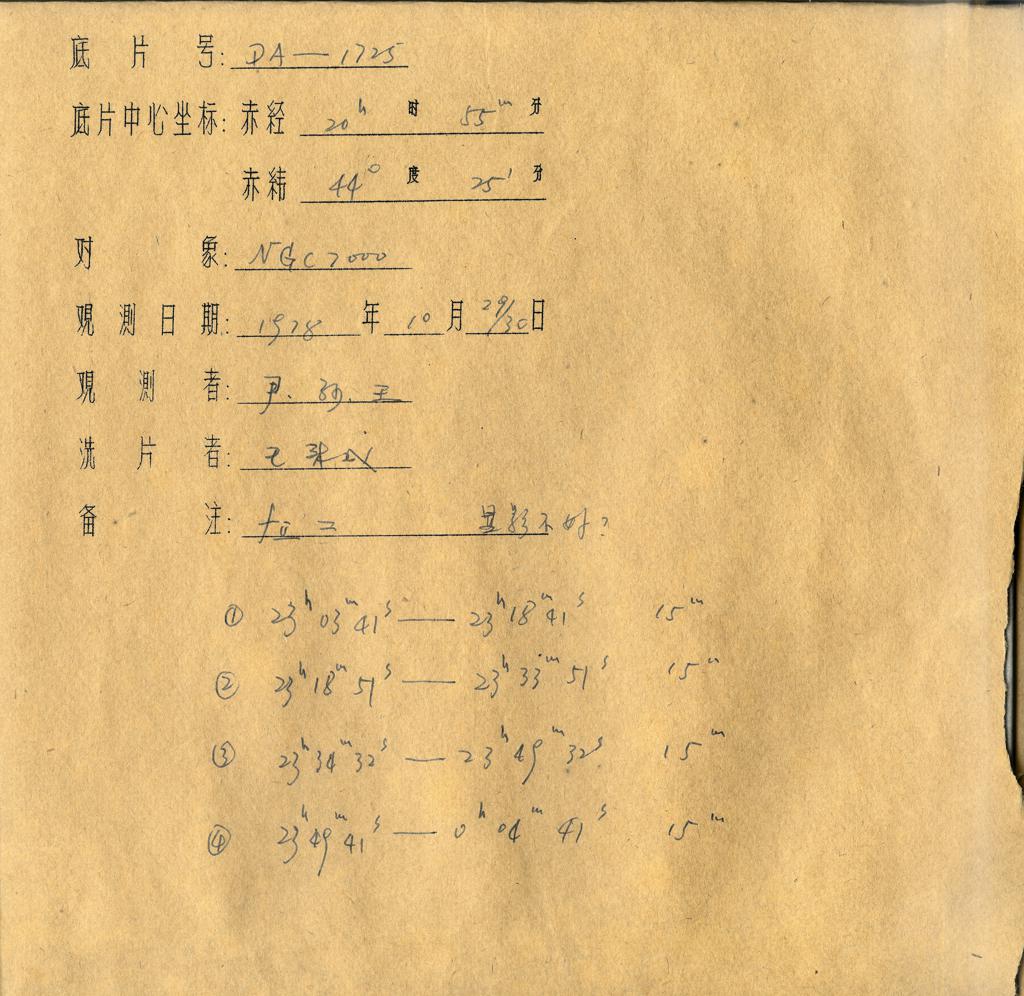 底片号: DA—1725
底片中心坐标: 赤经 20ʰ 时 55ᵐ 分
赤纬 44° 度 25′ 分
对象: NGC7000
观测日期: 1978 年 10 月 29/30 日
观测者: 尹、孙、王
洗片者: 王
备注: 二 显影不好?
① 23ʰ03ᵐ41ˢ — 23ʰ18ᵐ41ˢ 15ᵐ
② 23ʰ18ᵐ51ˢ — 23ʰ33ᵐ51ˢ 15ᵐ
③ 23ʰ34ᵐ32ˢ — 23ʰ49ᵐ32ˢ 15ᵐ
④ 23ʰ49ᵐ41ˢ — 0ʰ04ᵐ41ˢ 15ᵐ